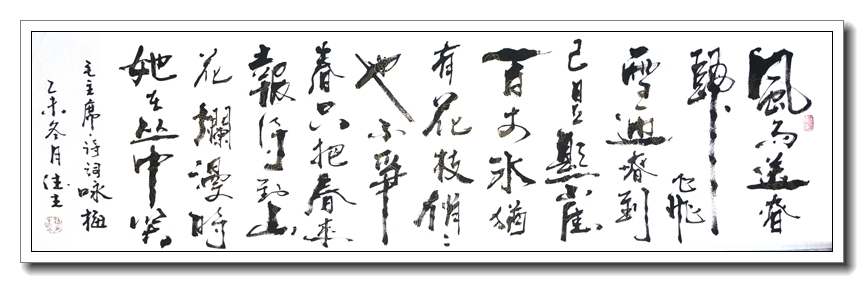 風雨送春
歸飛
雪迎春到
已是懸崖
百丈冰猶
有花枝俏〻
也不爭
春只把春來
報待到山
花爛漫時
她在丛中笑
毛主席诗词咏梅
乙未冬月